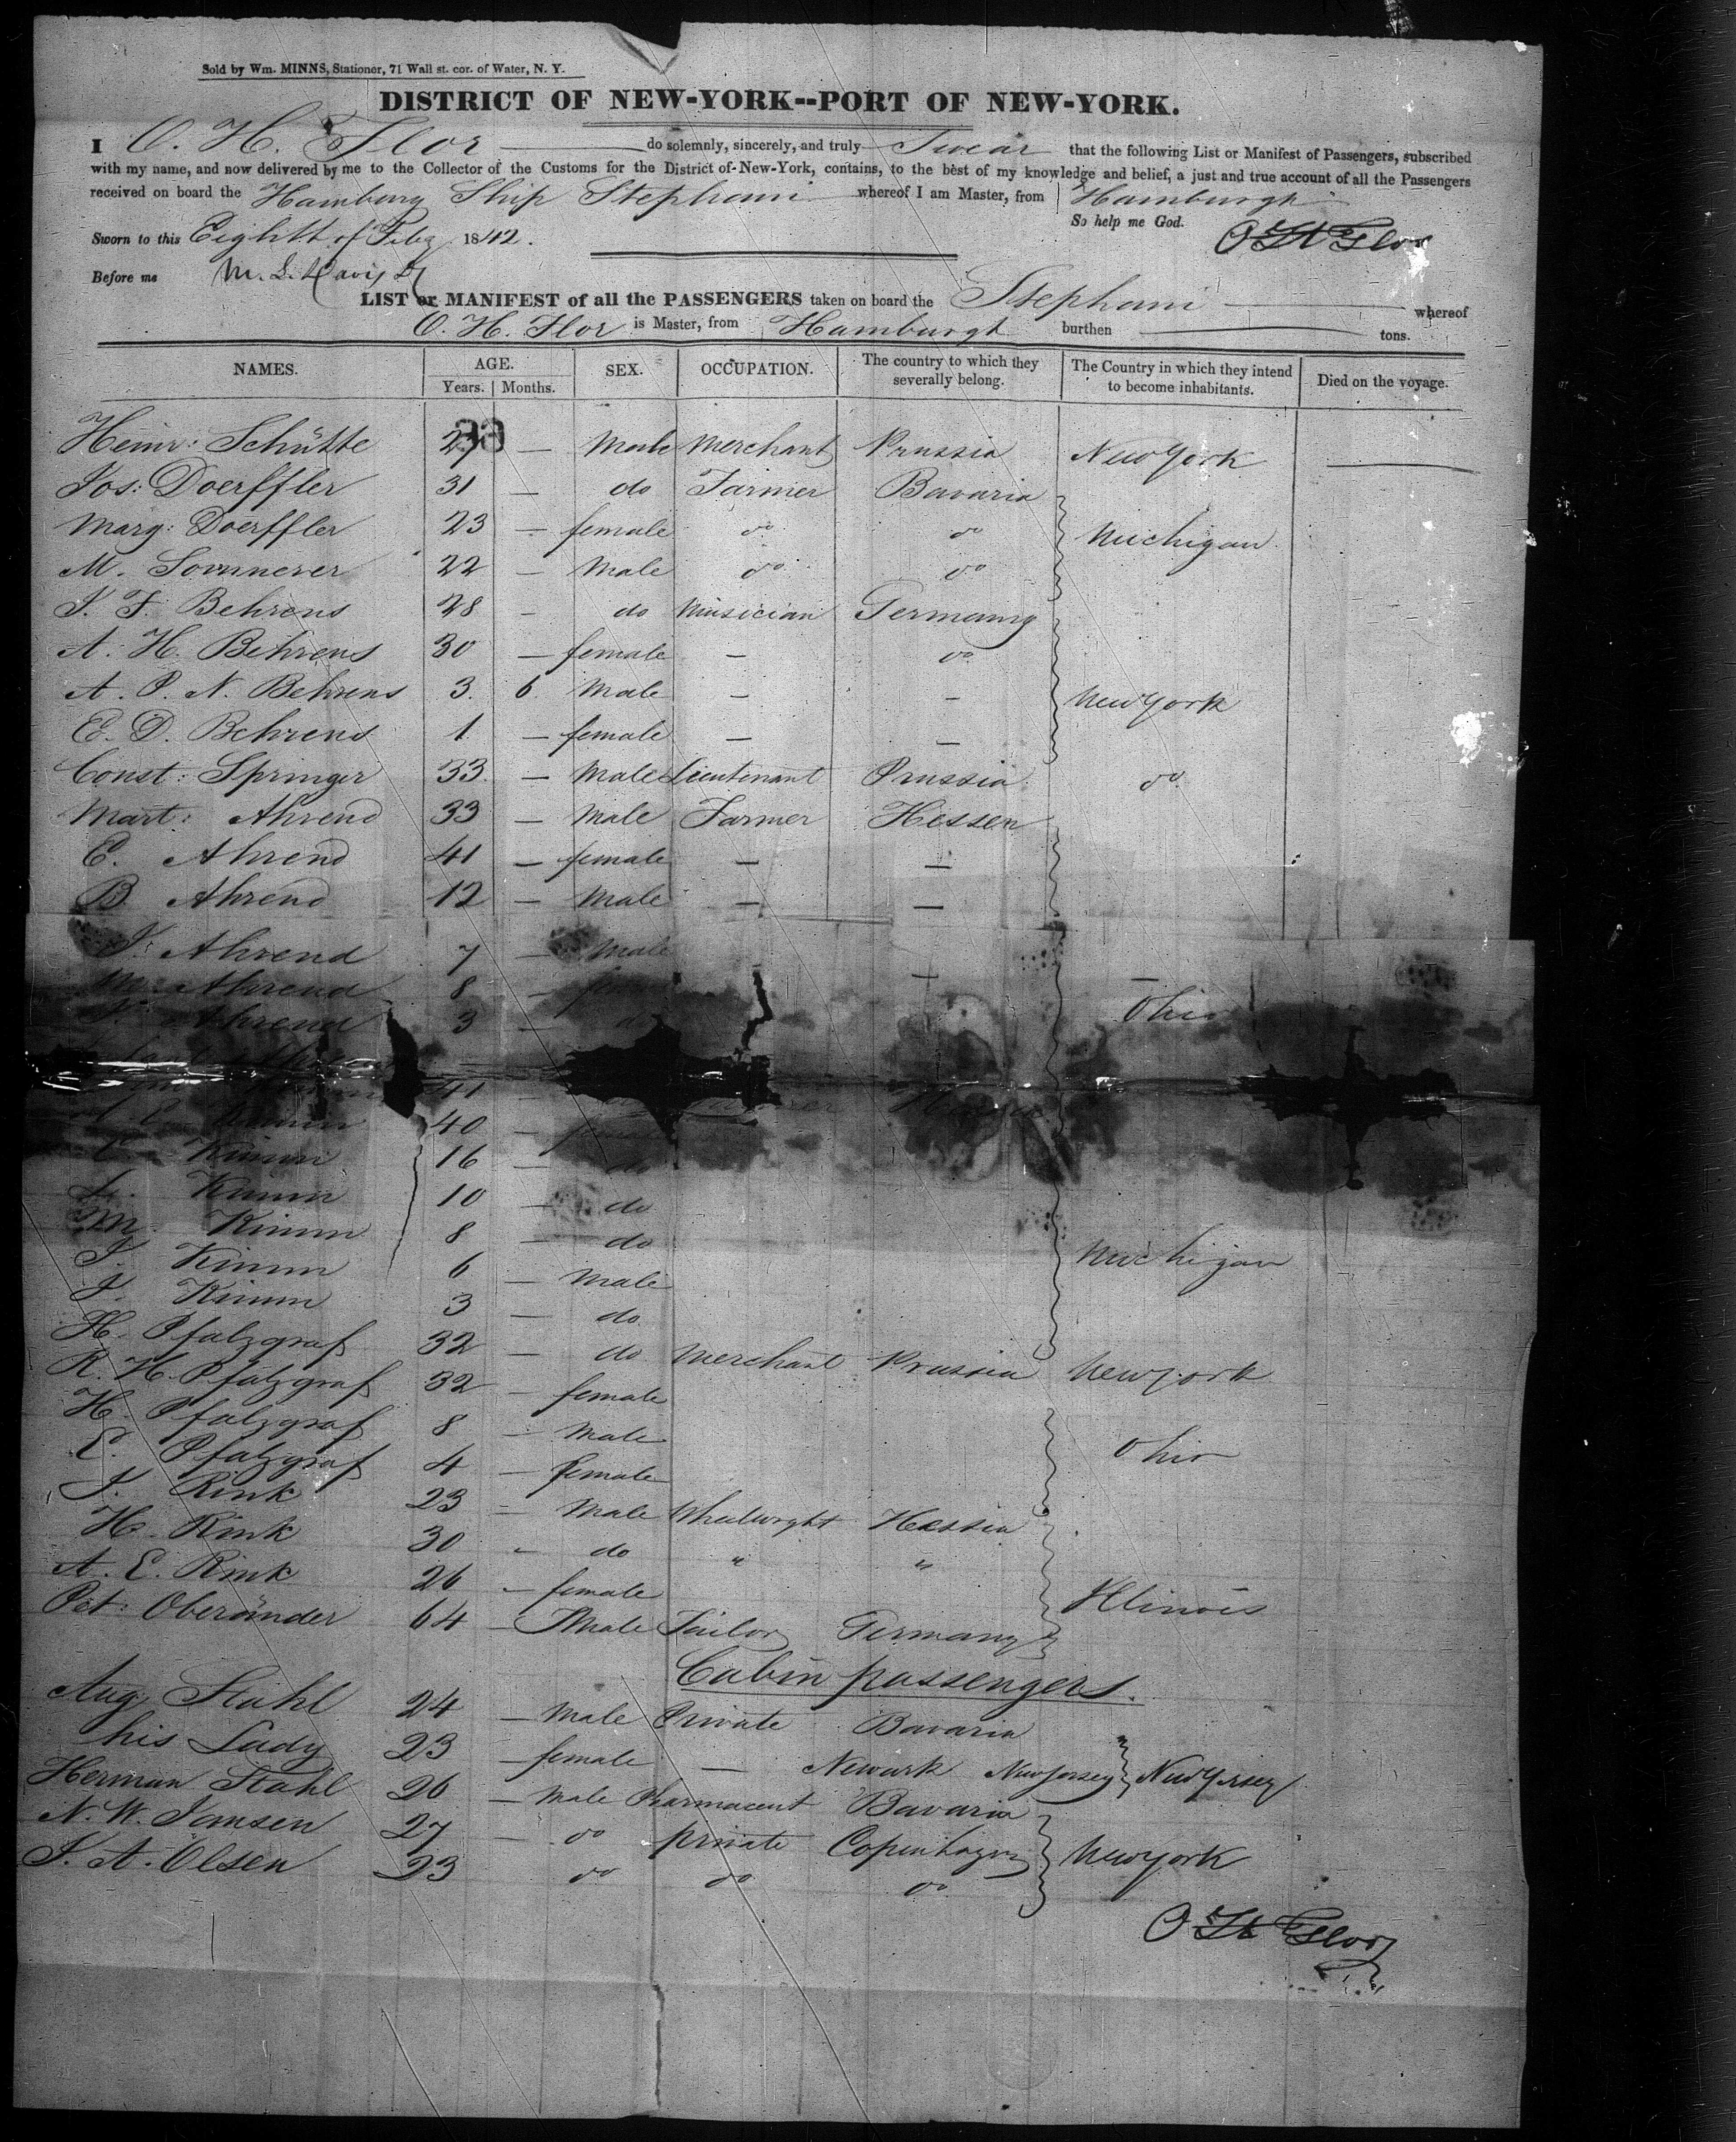 Sold by Wm. MINNS, Stationer, 71 Wall st. cor. of Water, N. Y.
DISTRICT OF NEW-YORK--PORT OF NEW-YORK.
I O. H. Flor do solemnly, sincerely, and truly Swear that the following List or Manifest of Passengers, subscribed
with my name, and now delivered by me to the Collector of the Customs for the District of New-York, contains, to the best of my knowledge and belief, a just and true account of all the Passengers
received on board the Hamburg Ship Stephani whereof I am Master, from Hamburgh
So help me God.
Sworn to this Eighth of Feby 1842. O H Flor
Before me M. L. Davis
LIST or MANIFEST of all the PASSENGERS taken on board the Stephani whereof
O. H. Flor is Master, from Hamburgh burthen tons.
NAMES. AGE. Years. Months. SEX. OCCUPATION. The country to which they severally belong. The Country in which they intend to become inhabitants. Died on the voyage.
Heinr: Schütte 27 — Male Merchant Prussia New York
33
Jos: Doerffler 31 — do Farmer Bavaria
Marg: Doerffler 23 — female do do Michigan
M. Sommerer 22 — Male do do
J. F. Behrens 28 - do Musician Germany
A. H. Behrens 30 — female — do
A. P. N. Behrens 3. 6 Male — — New York
E. D. Behrens 1. — female — —
Const: Springer 33 — Male Lieutenant Prussia do
Mart: Ahrend 33 — Male Farmer Hessen
E. Ahrend 41 — female — —
B. Ahrend 12 — Male — —
J. Ahrend 7 — Male — —
M. Ahrend 8 — Ohio
Ahrend 3 —
41
40 —
E. Kimm 16 — do
L. Kimm 10 — do
M. Kimm 8 — do Michigan
J. Kimm 6 — Male
J. Kimm 3 — do
H. Pfalzgraf 32 — do Merchant Prussia New York
R. H. Pfalzgraf 32 — female
H. Pfalzgraf 8 — Male Ohio
E. Pfalzgraf 4 — female
J. Rink 23 — Male Whelwright Hessia
H. Rink 30 - do " "
A. E. Rink 26 - female Illinois
Pet: Oberänder 64 — Male Tailor Germany
Cabin passengers.
Aug. Stahl 24 — Male Private Bavaria
his Lady 23 — female — Newark New Jersey New Yersey
Herman Stahl 26 — Male Pharmaceut Bavaria
N. W. Jansen 27 — do private Copenhagen New York
J. A. Olsen 23 do do do
O H Flor